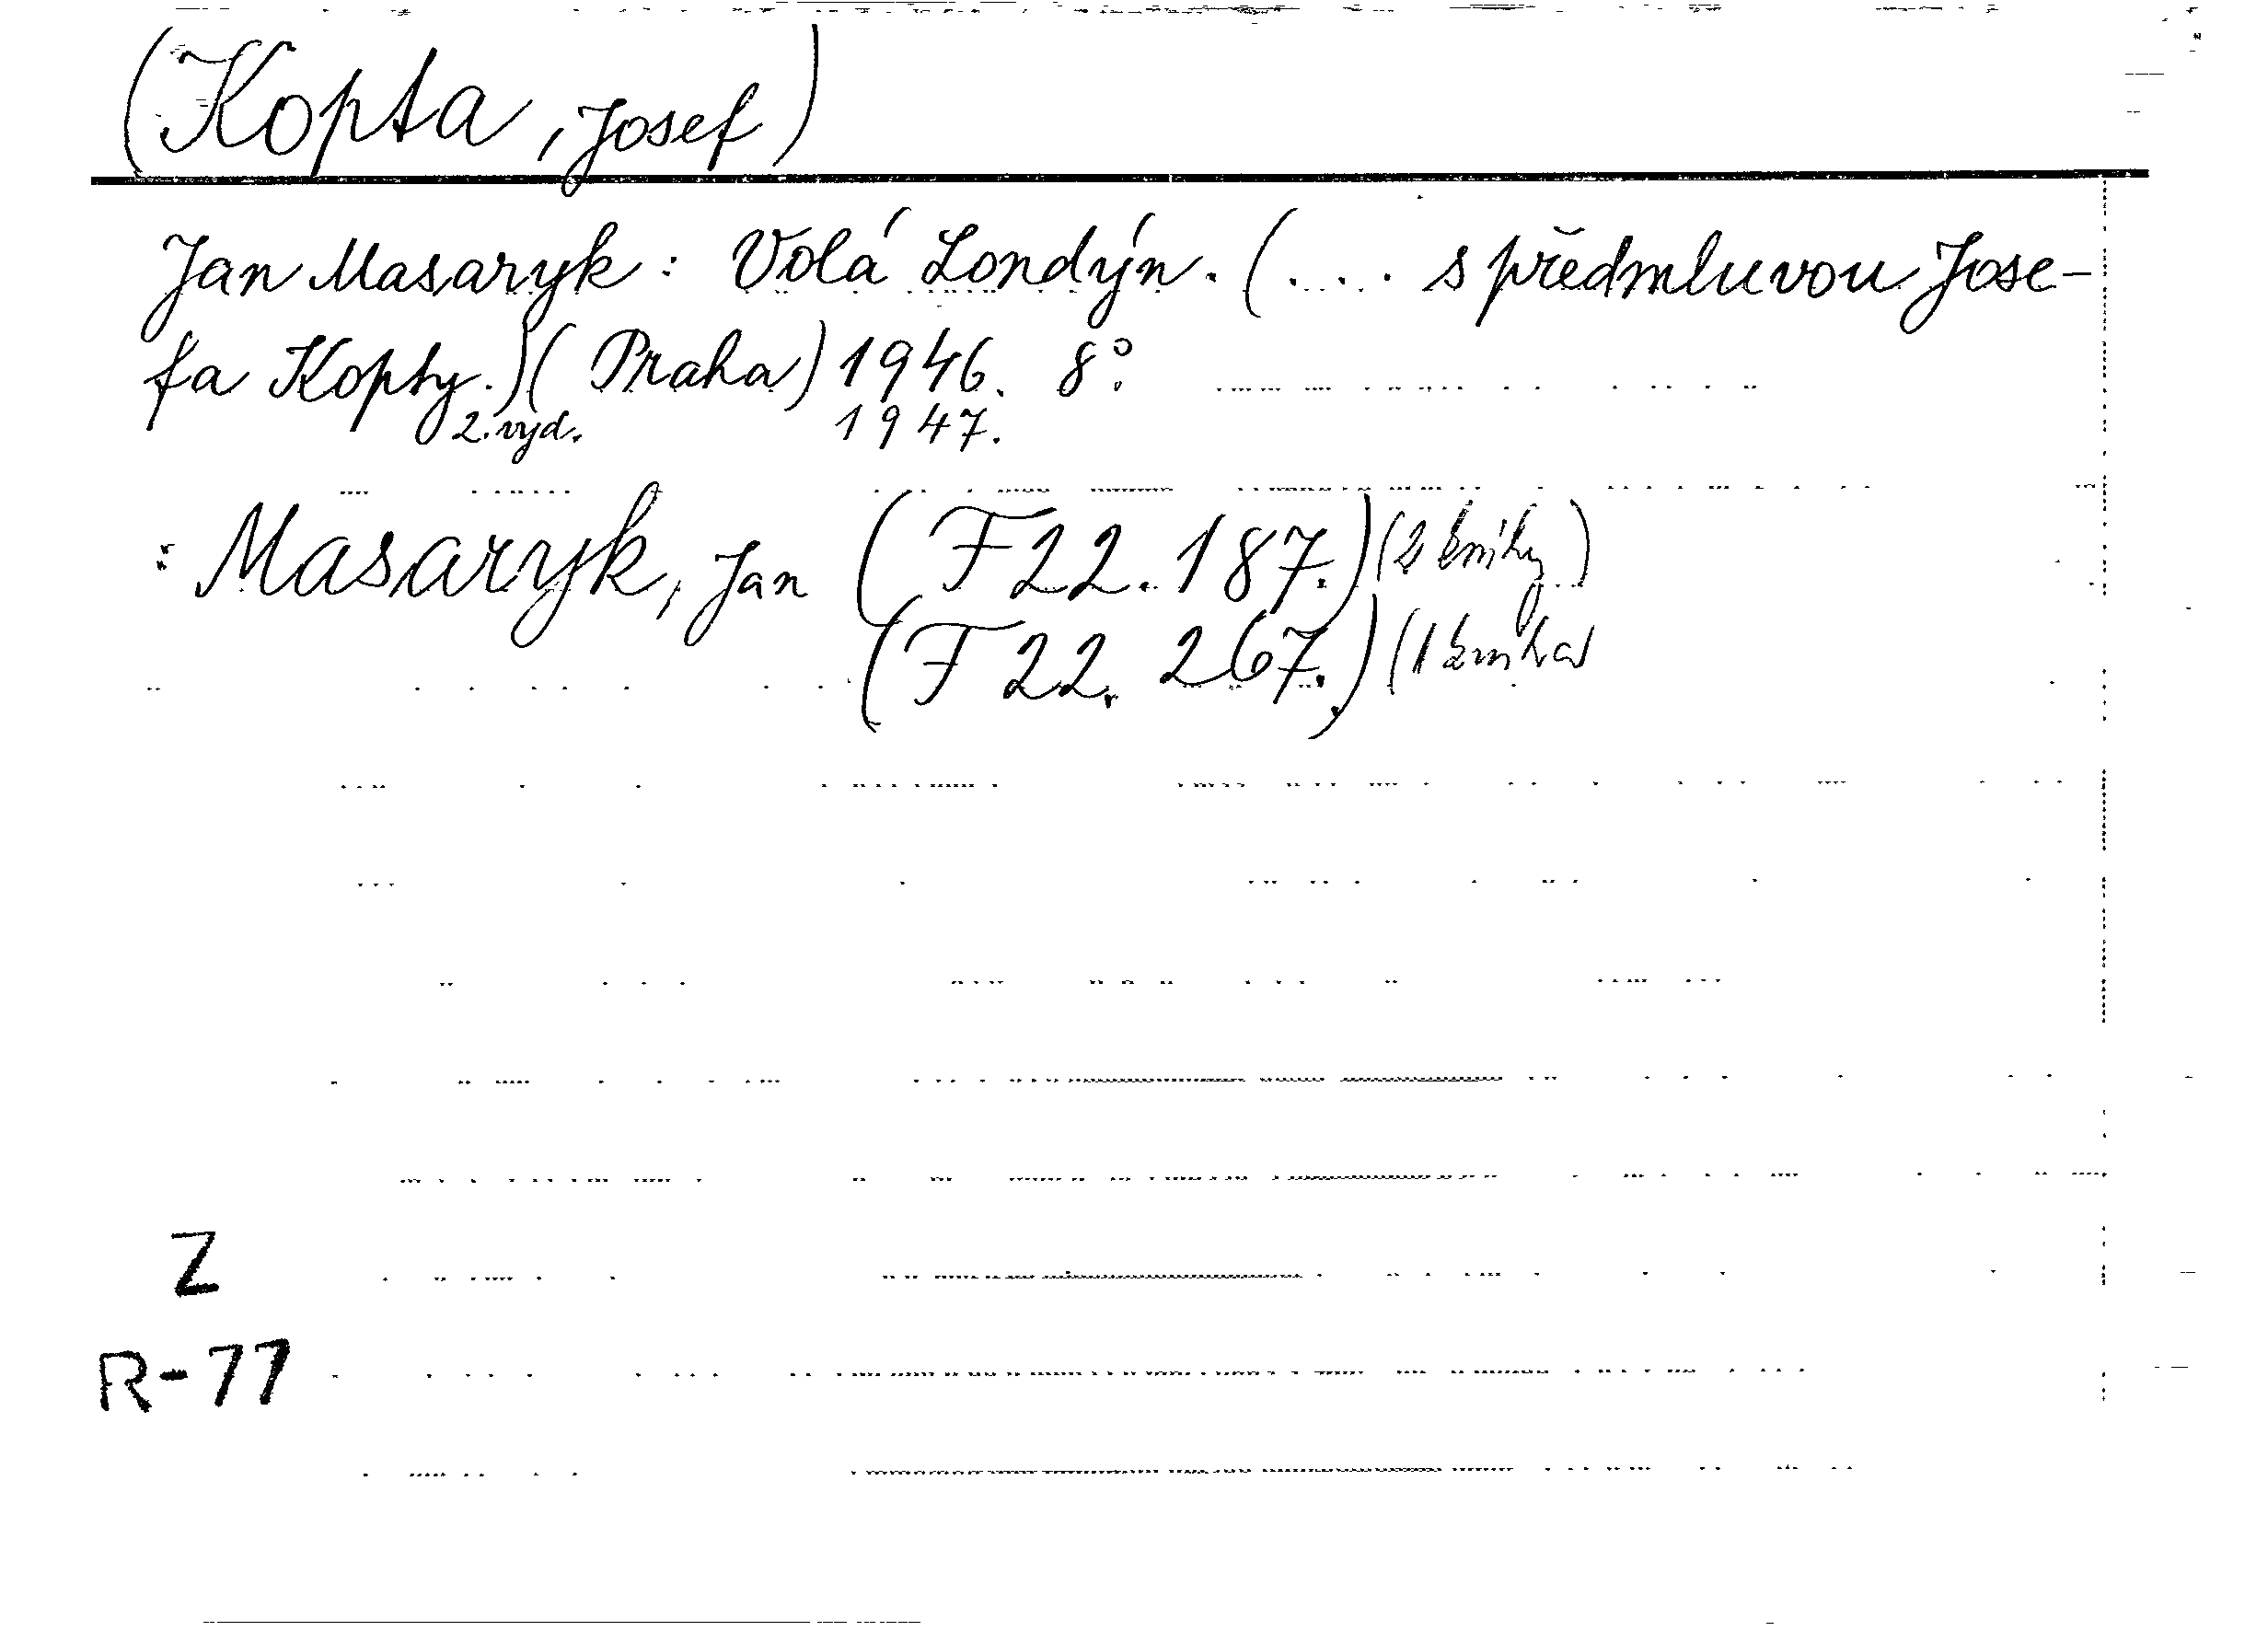 (Kopta, Josef)
Jan Masaryk: Volá Londýn. (... s předmluvou Jose-
fa Kopty.) (Praha) 1946. 8°.
2. vyd. 1947.
: Masaryk, Jan (F 22.187.) (2 knihy)
(F 22. 267.) (1 kniha)
Z
R-77